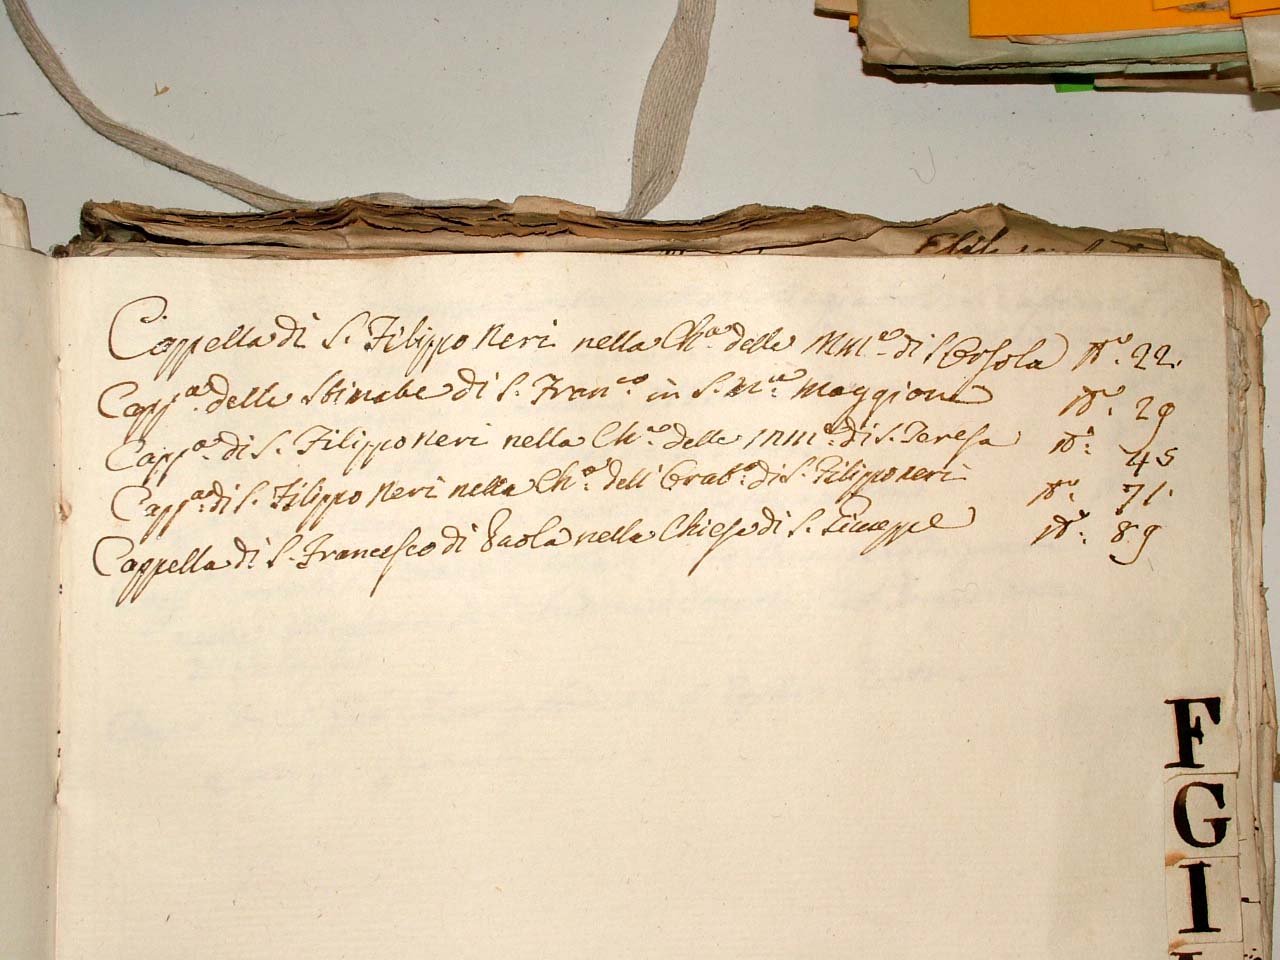 Cappella di S. Filippo Neri nella Ch.a delle MM.e di S Orsola N.o 22.
Capp.a delle Stimate di S. Fran.co in S. M.a Maggiore N.o 29
Capp.a di S. Filippo Neri nella Ch.a delle MM.e di S. Teresa N.o 45
Capp.a di S. Filippo Neri nella Ch.a dell' Orat.o di S. Filippo Neri N.o 71.
Cappella di S. Francesco di Paola nella Chiesa di S. Giuseppe N.o 89
F
G
I